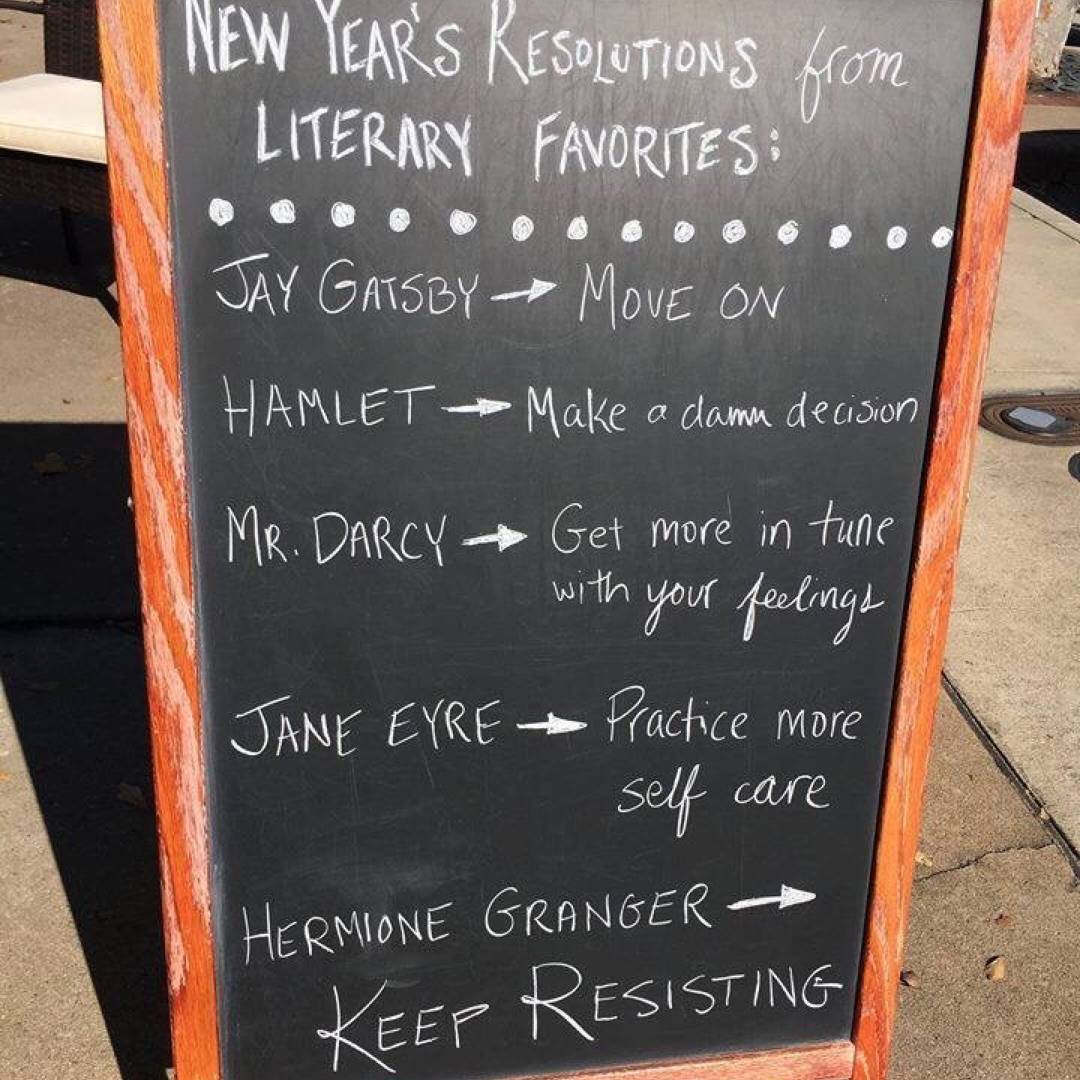 NEW YEAR'S RESOLUTIONS from
LITERARY FAVORITES:
JAY GATSBY → MOVE ON
HAMLET → Make a damn decision
MR. DARCY → Get more in tune
with your feelings
JANE EYRE → Practice more
self care
HERMIONE GRANGER →
KEEP RESISTING